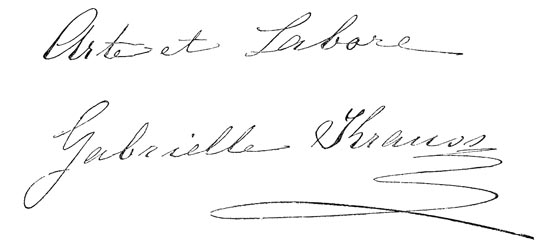 Arte et Labore
Gabrielle Krauss